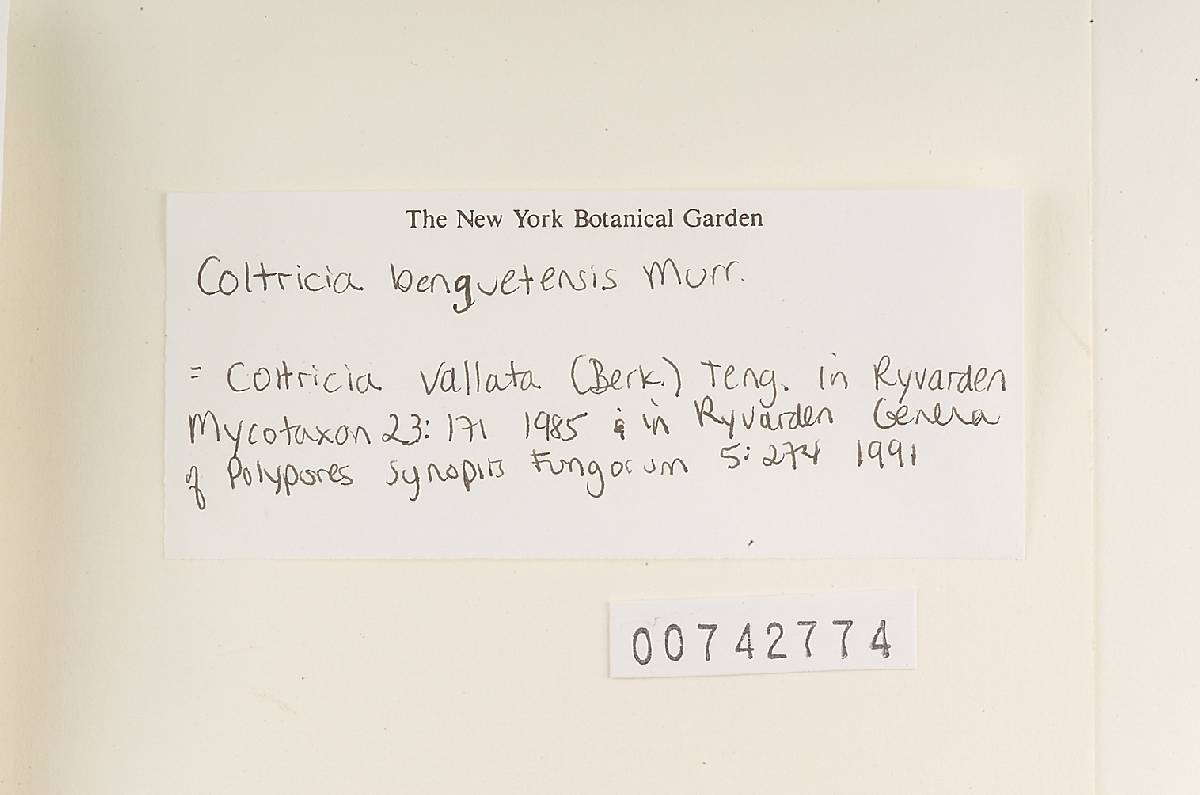 The New York Botanical Garden
Coltricia benguetensis Murr.
= Coltricia vallata (Berk.) Teng. in Ryvarden
Mycotaxon 23: 171 1985 & in Ryvarden Genera
of Polypores Synopsis Fungorum 5: 274 1991
00742774